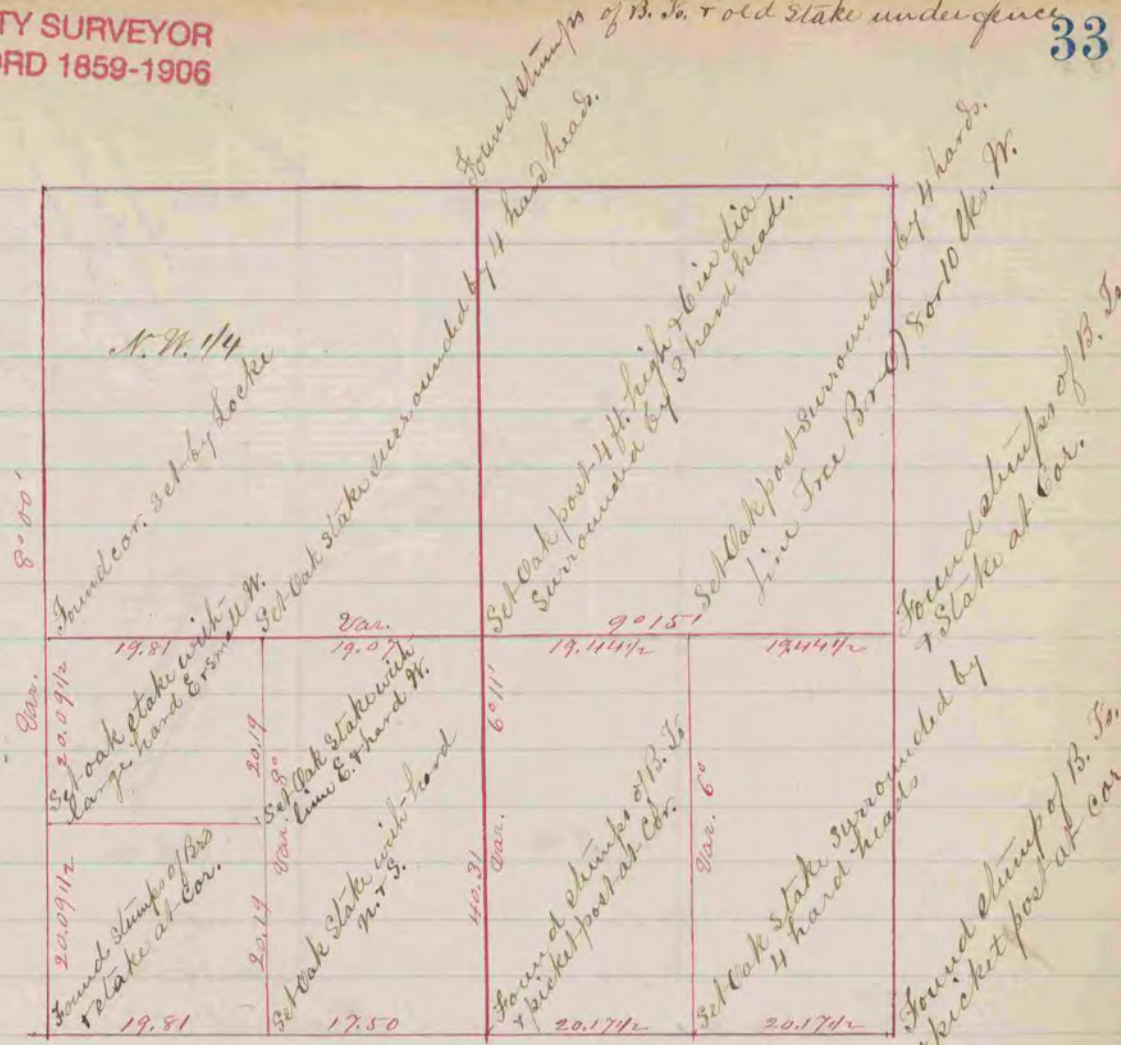 TY SURVEYOR
ORD 1859-1906
33
Found stumps of B. Ts. & old stake under fence
N.W. 1/4
Found cor. set by Locke
Set Oak stake surrounded by 4 hard heads.
Set Oak post 4 ft. high & 6 in dia
Surrounded by 3 hard heads.
Set Oak post surrounded by 4 hards.
line Tree Br 8 or 10 lks. W.
Found stumps of B. Ts
& Stake at Cor.
8°00'
Var.
Var.
9°15'
19.81
19.07
19.44 1/2
19.44 1/2
20.09 1/2
Set oak stake with
large hard E & small W.
20.19
Var. 8°
Set Oak Stake with
lime E. & hard W.
6°11'
Var.
40.31
Var. 6°
20.09 1/2
Found stumps of Brs
& stake at Cor.
20.19
Set Oak Stake with hard
N. & S.
Found stumps of B. Ts
& picket post at Cor.
Set Oak stake surrounded by
4 hard heads
Found stump of B. Ts.
picket post at Cor
19.81
17.50
20.17 1/2
20.17 1/2